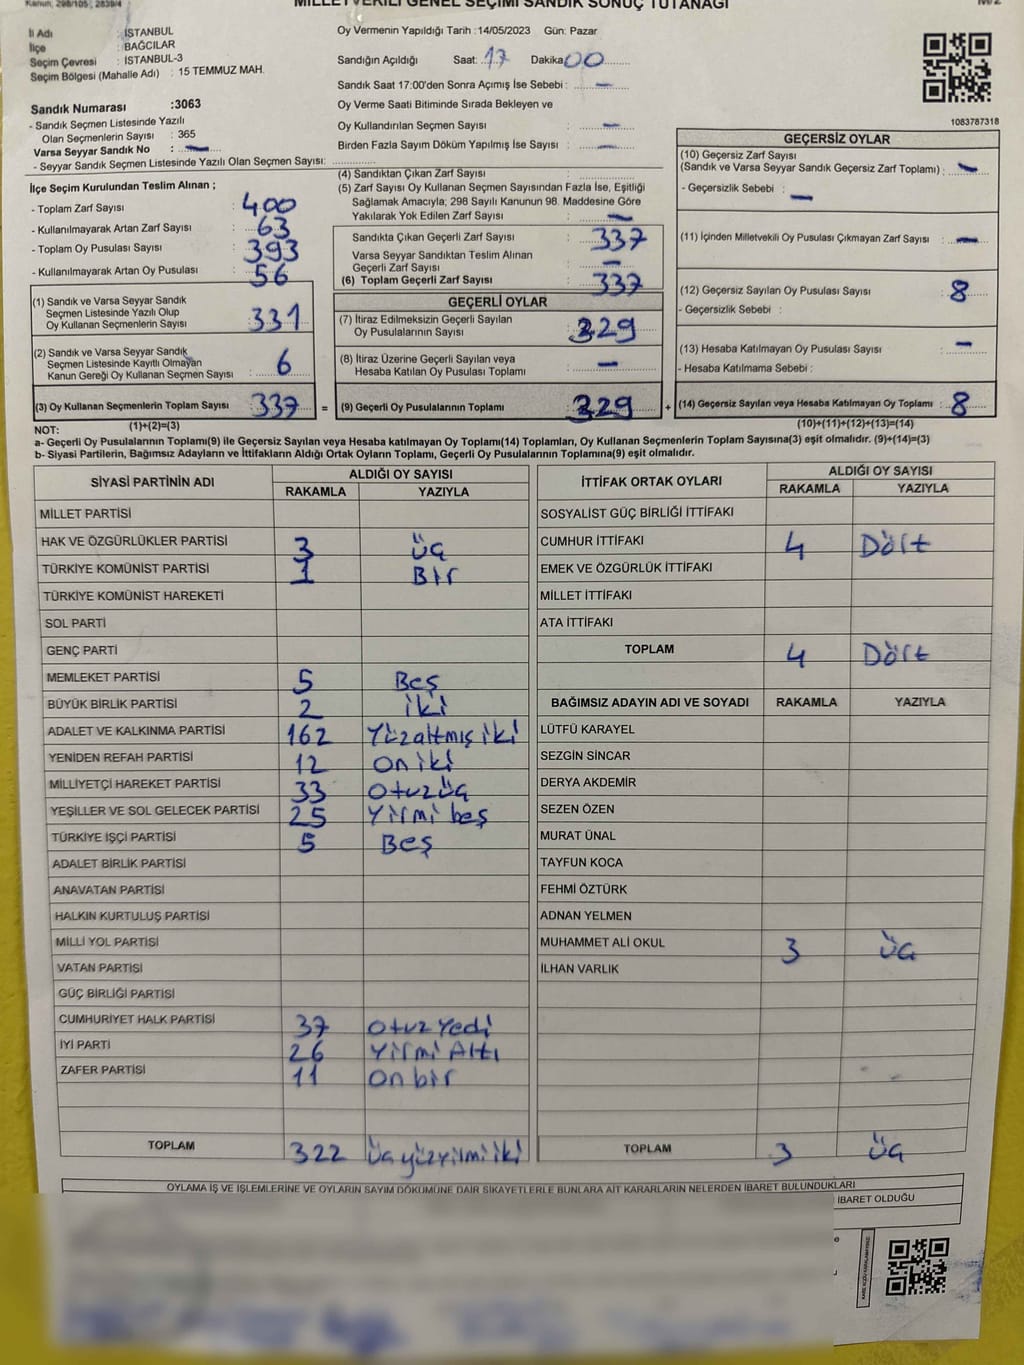 Kanun, 298/105, 2839/4
MİLLETVEKİLİ GENEL SEÇİMİ SANDIK SONUÇ TUTANAĞI
İli Adı : İSTANBUL
İlçe : BAĞCILAR
Seçim Çevresi : İSTANBUL-3
Seçim Bölgesi (Mahalle Adı) : 15 TEMMUZ MAH.
Sandık Numarası :3063
- Sandık Seçmen Listesinde Yazılı
Olan Seçmenlerin Sayısı : 365
Varsa Seyyar Sandık No : —
- Seyyar Sandık Seçmen Listesinde Yazılı Olan Seçmen Sayısı:
Oy Vermenin Yapıldığı Tarih :14/05/2023 Gün: Pazar
Sandığın Açıldığı Saat: 17 Dakika: 00
Sandık Saat 17:00'den Sonra Açımış İse Sebebi : —
Oy Verme Saati Bitiminde Sırada Bekleyen ve
Oy Kullandırılan Seçmen Sayısı : —
Birden Fazla Sayım Döküm Yapılmış İse Sayısı : —
1083787318
İlçe Seçim Kurulundan Teslim Alınan ;
- Toplam Zarf Sayısı : 400
- Kullanılmayarak Artan Zarf Sayısı : 63
- Toplam Oy Pusulası Sayısı : 393
- Kullanılmayarak Artan Oy Pusulası : 56
(1) Sandık ve Varsa Seyyar Sandık
Seçmen Listesinde Yazılı Olup
Oy Kullanan Seçmenlerin Sayısı : 331
(2) Sandık ve Varsa Seyyar Sandık
Seçmen Listesinde Kayıtlı Olmayan
Kanun Gereği Oy Kullanan Seçmen Sayısı : 6
(3) Oy Kullanan Seçmenlerin Toplam Sayısı : 337 =
(4) Sandıktan Çıkan Zarf Sayısı :
(5) Zarf Sayısı Oy Kullanan Seçmen Sayısından Fazla İse, Eşitliği
Sağlamak Amacıyla; 298 Sayılı Kanunun 98. Maddesine Göre
Yakılarak Yok Edilen Zarf Sayısı : —
Sandıkta Çıkan Geçerli Zarf Sayısı : 337
Varsa Seyyar Sandıktan Teslim Alınan
Geçerli Zarf Sayısı : —
(6) Toplam Geçerli Zarf Sayısı : 337
GEÇERLİ OYLAR
(7) İtiraz Edilmeksizin Geçerli Sayılan
Oy Pusulalarının Sayısı : 329
(8) İtiraz Üzerine Geçerli Sayılan veya
Hesaba Katılan Oy Pusulası Toplamı : —
(9) Geçerli Oy Pusulalarının Toplamı : 329 +
GEÇERSİZ OYLAR
(10) Geçersiz Zarf Sayısı
(Sandık ve Varsa Seyyar Sandık Geçersiz Zarf Toplamı) : —
- Geçersizlik Sebebi : —
(11) İçinden Milletvekili Oy Pusulası Çıkmayan Zarf Sayısı : —
(12) Geçersiz Sayılan Oy Pusulası Sayısı : 8
- Geçersizlik Sebebi :
(13) Hesaba Katılmayan Oy Pusulası Sayısı : —
- Hesaba Katılmama Sebebi :
(14) Geçersiz Sayılan veya Hesaba Katılmayan Oy Toplamı : 8
NOT: (1)+(2)=(3) (10)+(11)+(12)+(13)=(14)
a- Geçerli Oy Pusulalarının Toplamı(9) ile Geçersiz Sayılan veya Hesaba katılmayan Oy Toplamı(14) Toplamları, Oy Kullanan Seçmenlerin Toplam Sayısına(3) eşit olmalıdır. (9)+(14)=(3)
b- Siyasi Partilerin, Bağımsız Adayların ve İttifakların Aldığı Ortak Oyların Toplamı, Geçerli Oy Pusulalarının Toplamına(9) eşit olmalıdır.
SİYASİ PARTİNİN ADI ALDIĞI OY SAYISI
RAKAMLA YAZIYLA
MİLLET PARTİSİ
HAK VE ÖZGÜRLÜKLER PARTİSİ 3 üç
TÜRKİYE KOMÜNİST PARTİSİ 1 Bir
TÜRKİYE KOMÜNİST HAREKETİ
SOL PARTİ
GENÇ PARTİ
MEMLEKET PARTİSİ 5 Beş
BÜYÜK BİRLİK PARTİSİ 2 iki
ADALET VE KALKINMA PARTİSİ 162 Yüzaltmış iki
YENİDEN REFAH PARTİSİ 12 on iki
MİLLİYETÇİ HAREKET PARTİSİ 33 otuzüç
YEŞİLLER VE SOL GELECEK PARTİSİ 25 Yirmi beş
TÜRKİYE İŞÇİ PARTİSİ 5 Beş
ADALET BİRLİK PARTİSİ
ANAVATAN PARTİSİ
HALKIN KURTULUŞ PARTİSİ
MİLLİ YOL PARTİSİ
VATAN PARTİSİ
GÜÇ BİRLİĞİ PARTİSİ
CUMHURİYET HALK PARTİSİ 37 otuz yedi
İYİ PARTİ 26 Yirmi Altı
ZAFER PARTİSİ 11 on bir
TOPLAM 322 üç yüzyirmi iki
İTTİFAK ORTAK OYLARI ALDIĞI OY SAYISI
RAKAMLA YAZIYLA
SOSYALİST GÜÇ BİRLİĞİ İTTİFAKI
CUMHUR İTTİFAKI 4 Dört
EMEK VE ÖZGÜRLÜK İTTİFAKI
MİLLET İTTİFAKI
ATA İTTİFAKI
TOPLAM 4 Dört
BAĞIMSIZ ADAYIN ADI VE SOYADI RAKAMLA YAZIYLA
LÜTFÜ KARAYEL
SEZGİN SİNCAR
DERYA AKDEMİR
SEZEN ÖZEN
MURAT ÜNAL
TAYFUN KOCA
FEHMİ ÖZTÜRK
ADNAN YELMEN
MUHAMMET ALİ OKUL 3 üç
İLHAN VARLIK
TOPLAM 3 üç
OYLAMA İŞ VE İŞLEMLERİNE VE OYLARIN SAYIM DÖKÜMÜNE DAİR ŞİKAYETLERLE BUNLARA AİT KARARLARIN NELERDEN İBARET BULUNDUKLARI
İBARET OLDUĞU